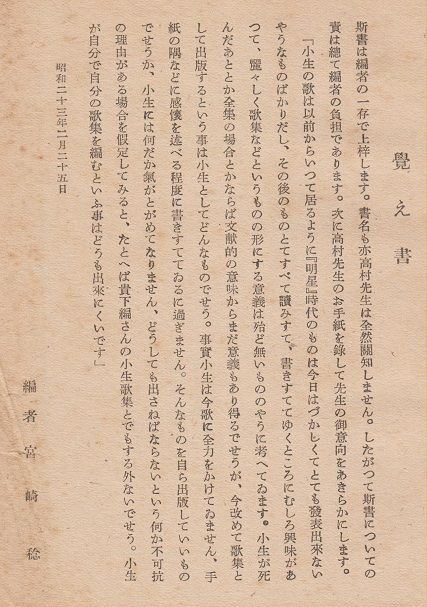 覺え書
斯書は編者の一存で上梓します。書名も亦高村先生は全然關知しません。したがつて斯書についての
責は總て編者の負担であります。次に高村先生のお手紙を錄して先生の御意向をあきらかにします。
「小生の歌は以前からいつて居るように『明星』時代のものは今日はづかしくてとても發表出來ない
やうなものばかりだし、その後のものとてすべて讀みすて、書きすててゆくところにむしろ興味があ
つて、麗々しく歌集などというものの形にする意義は殆ど無いもののやうに考へてゐます。小生が死
んだあととか全集の場合とかならば文献的の意味からまだ意義もあり得るでせうが、今改めて歌集と
して出版するという事は小生としてどんなものでせう。事實小生は今歌に全力をかけてゐません、手
紙の隅などに感懷を述べる程度に書きすててゐるに過ぎません。そんなものを自ら出版していいもの
でせうか、小生には何だか氣がとがめてなりません、どうしても出さねばならないという何か不可抗
の理由がある場合を假定してみると、たとへば貴下編さんの小生歌集とでもする外ないでせう。小生
が自分で自分の歌集を編むといふ事はどうも出來にくいです」
昭和二十三年二月二十五日
編者 宮崎稔